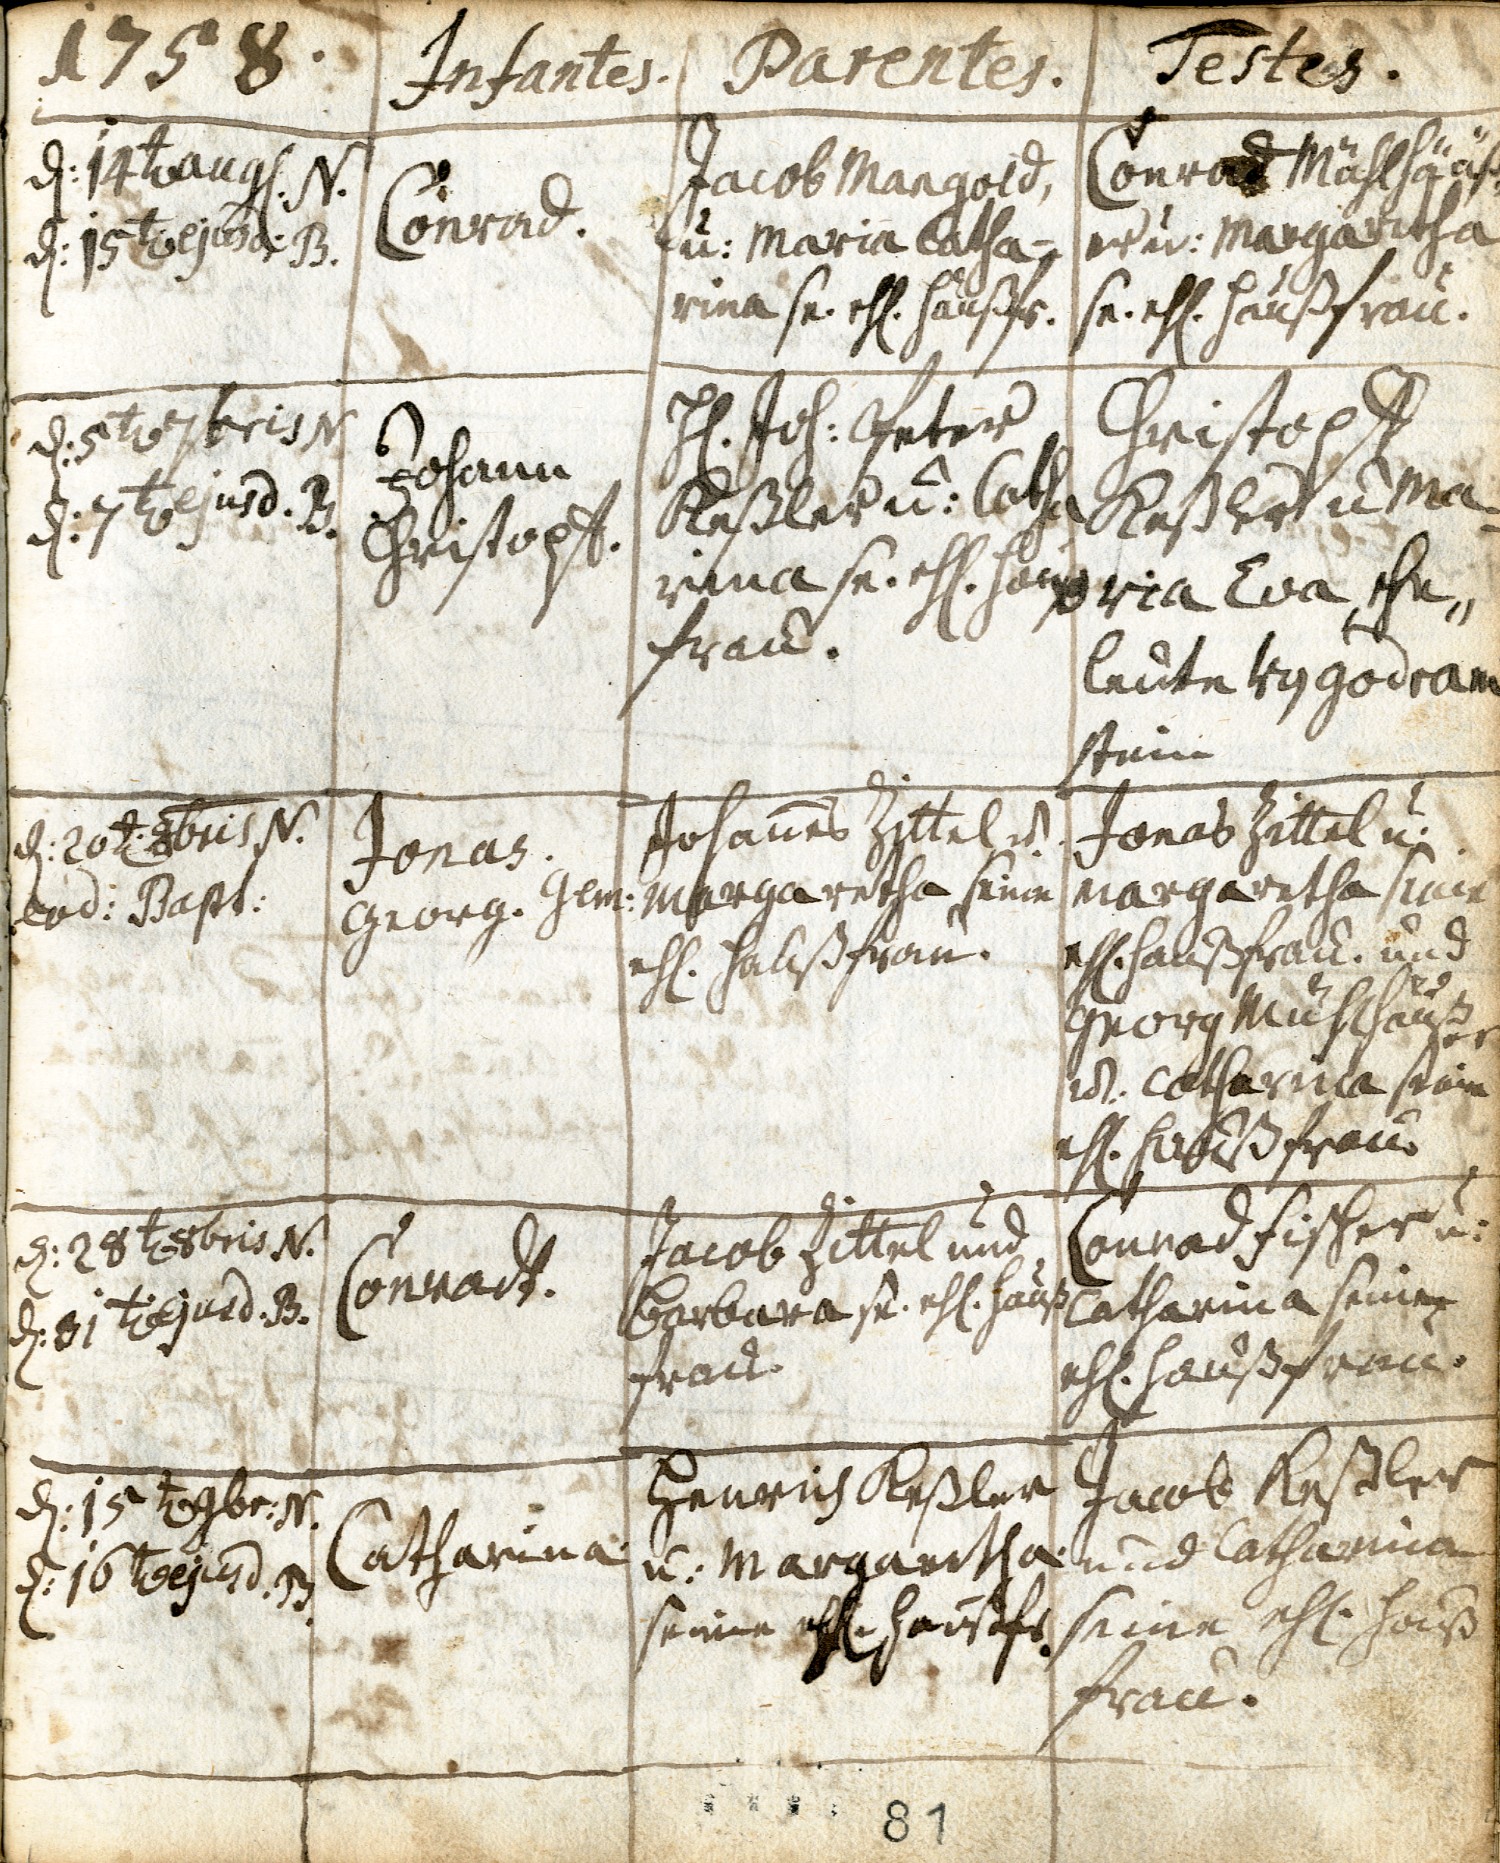 1758. Infantes. Parentes. Testes.
d: 14t augs. N.
d: 15t ejusd: B.
Conrad.
Jacob Mangold,
u: Maria Catha-
rina se. ehl. haußfr.
Conrad Mühlhäuß
er u: Margaretha
se. ehl. haußfrau.
d: 5t 7bris N
d: 7t ejusd. B.
Johann
Christoph.
H. Joh: Peter
Keßler u: Catha
rina se. ehl. hauß
frau.
Christoph
Keßler u Ma-
ria Eva, ehe„
leute
stein
d: 20t 8bris N.
eod: Bapt:
Jonas.
Georg. Gem:
Johannes Zittel u.
Margaretha seine
ehl. haußfrau.
Jonas Zittel u:
Margaretha seine
ehl. haußfrau. und
Georg Mühlhäußer
u: Catharina seine
ehl. haußfrau
d: 28t 8bris N.
d: 31t ejusd. B.
Conradt.
Jacob Zittel und
Barbara se. ehl. hauß
frau.
Conrad Fischer u:
Catharina seine
ehl. haußfrau.
d: 15t 9br: N.
d: 16t ejusd. B.
Catharina
Henrich Keßler
u: Margaretha
seine ehl. haußfr.
Jacob Keßler
und Catharina
seine ehl. hauß
frau.
81